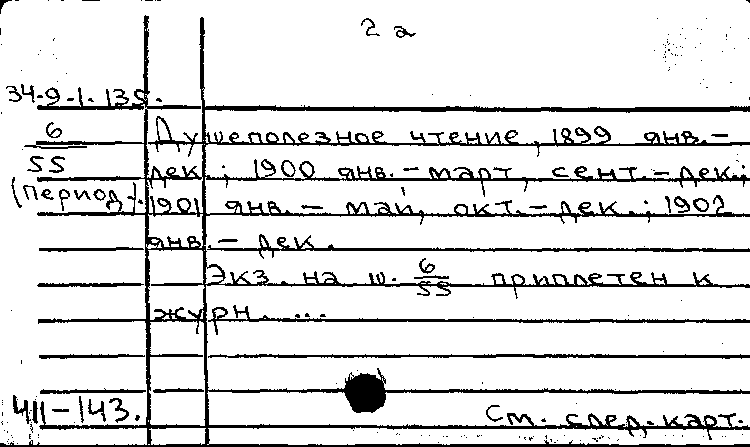 2а
34-9-1-135.
6
55
(период.)
Душеполезное чтение, 1899 янв.-
дек.; 1900 янв.-март, сент.-дек.;
1901 янв.- май, окт.-дек.; 1902
янв.- дек.
Экз. на ш. 6/55 приплетен к
журн. ....
411-143.
См. след. карт.